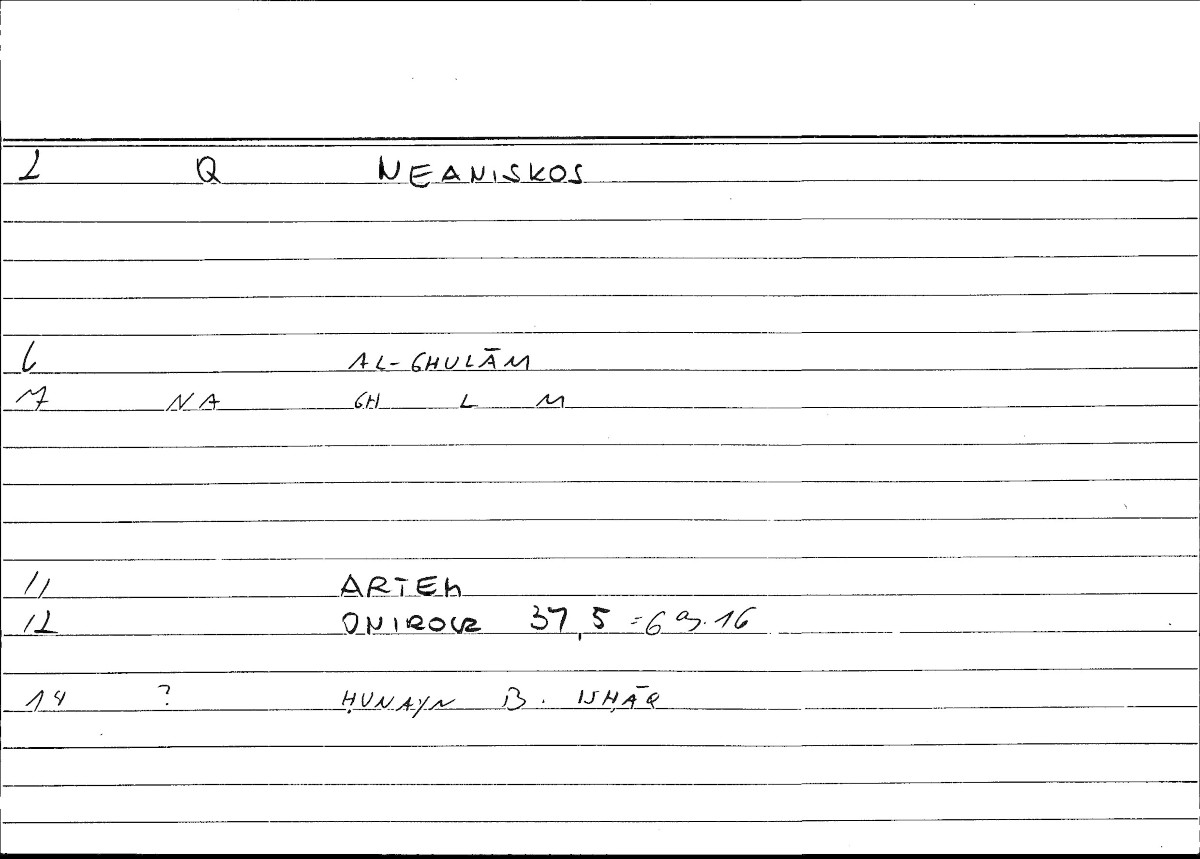 2 Q NEANISKOS
6 AL-GHULĀM
7 NA GH L M
11 ARTEM
12 ONIROCR 37,5 = 69.16
14 ? ḤUNAYN B. ISḤĀQ